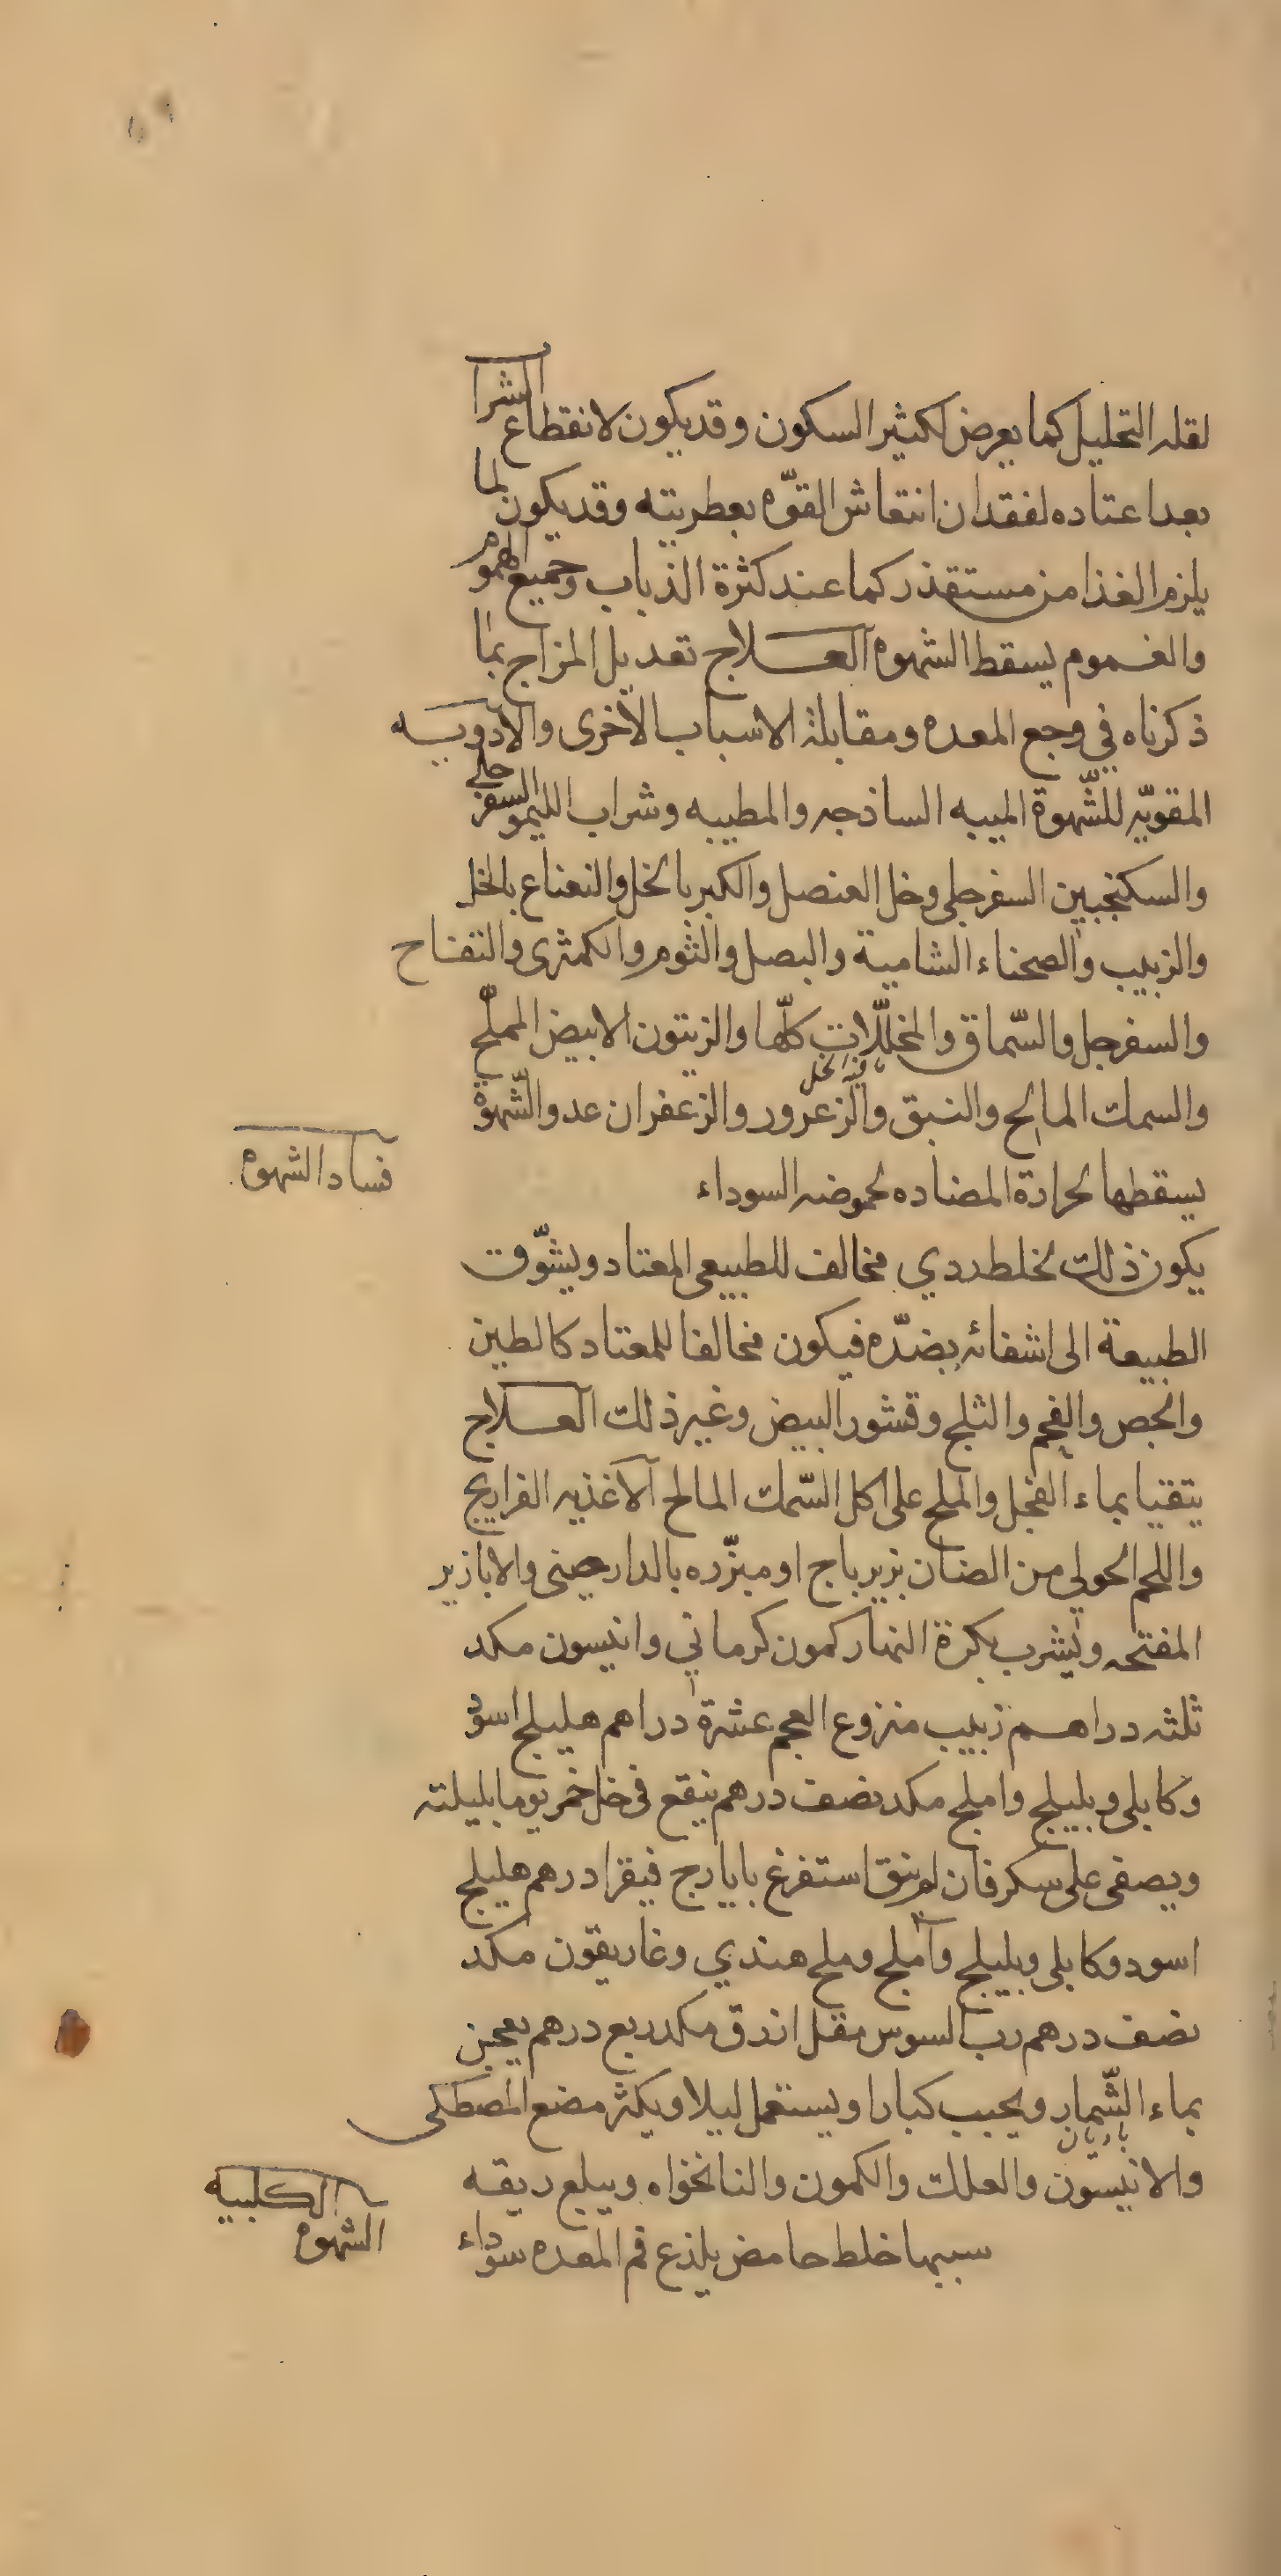 لقله التحليل كما يعرض لكثير السكون وقد يكون لانقطاع الشراب
بعد اعتاده لفقدان انتعاش القوّه بعطريته وقد يكون لما
يلزم الغذا من مستقذر كما عند كثرة الذباب وجميع الهموم
والغموم يسقط الشهوه العلاج تعديل المزاج بما
ذكرناه في وجع المعده ومقابلة الاسباب الأخرى والادويه
المقويّه للشّهوة الميبه الساذجه والمطيبه وشراب الليمو السفرجلي
والسكنجبين السفرجلي وخل العنصل والكبر بالخل والنعناع بالخل
والزبيب والصحناء الشامية والبصل والثوم والكمثرى والتفاح
والسفرجل والسّماق والمخللّات كلّها والزيتون الابيض المملّح
والسمك المالح والنبق والزعرور والزعفران عدو الشّهوة
يسقطها لحرارة المضاده لحموضه السوداء
فساد الشهوه
يكون ذلك لخلط ردي مخالف للطبيعى المعتاد ويشوّق
الطبيعة الى اشفائه بضدّه فيكون مخالفا للمعتاد كالطين
والجص والفحم والثلج وقشور البيض وغير ذلك العلاج
يتقيا بماء الفجل والملح على اكل السّمك المالح الاغذيه الفراريج
واللحم الحولي من الضان بزيرباج او مبزّره بالدارصيني والابازير
المفتحه ويشرب بكرة النهار كمون كرماني وانيسون مكد
ثلثه دراهم زبيب منزوع العجم عشرة دراهم هليلج اسود
وكابلي وبليلج واملج مكد نصف درهم ينقع في خل خمر يوما بليلته
ويصفى على سكر فان لم ينق استفرغ بايارج فيقرا درهم هليلج
اسود وكابلى وبليلج وآملج وملح هندي وغاريقون مكد
نصف درهم رب السوس مقل ازرق مكد ربع درهم يعجن
بماء الشّمار ويحبب كبارا ويستعمل ليلا ويكثر مضع المصطكى
والانيسون والعلك والكمون والنانخواه ويبلع ريقه
الشهوه الكلبيه
سببها خلط حامض يلذع فم المعده سوداء